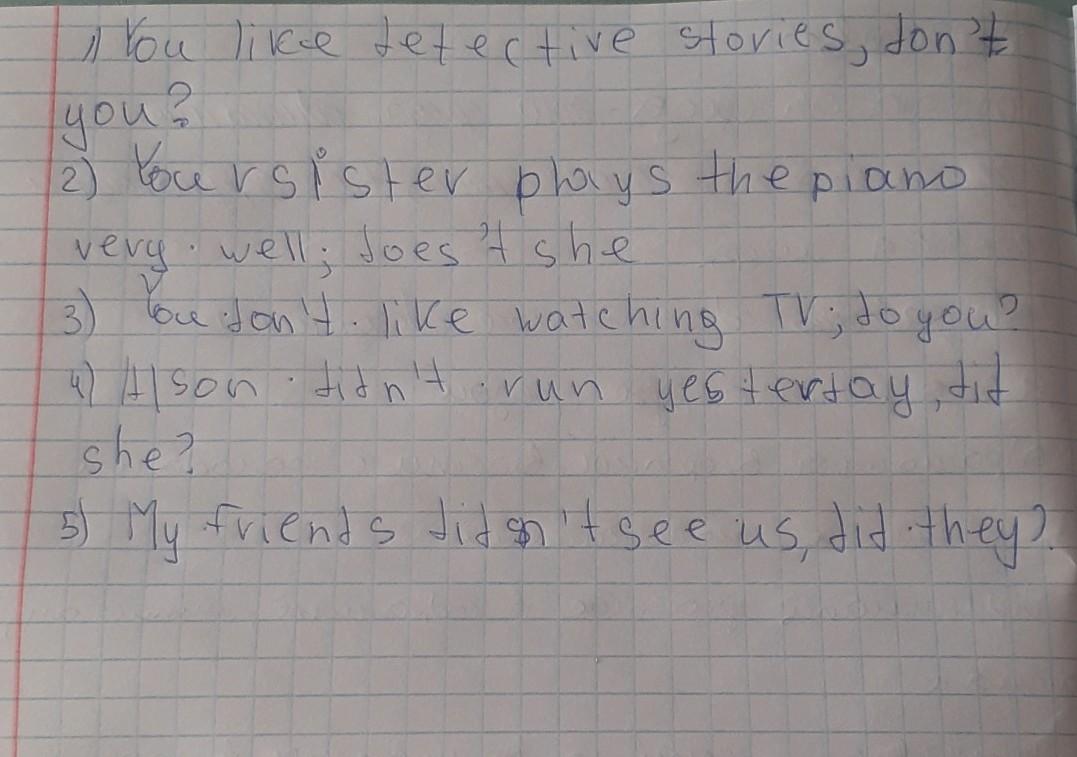 1) You like detective stories, don't
you?
2) Your sister plays the piano
very well; does't she
3) You don't like watching TV; do you?
4) Alson didn't run yesterday, did
she?
5) My friends didn't see us, did they?